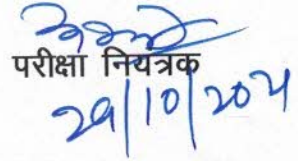 परीक्षा नियंत्रक
29/10/2021